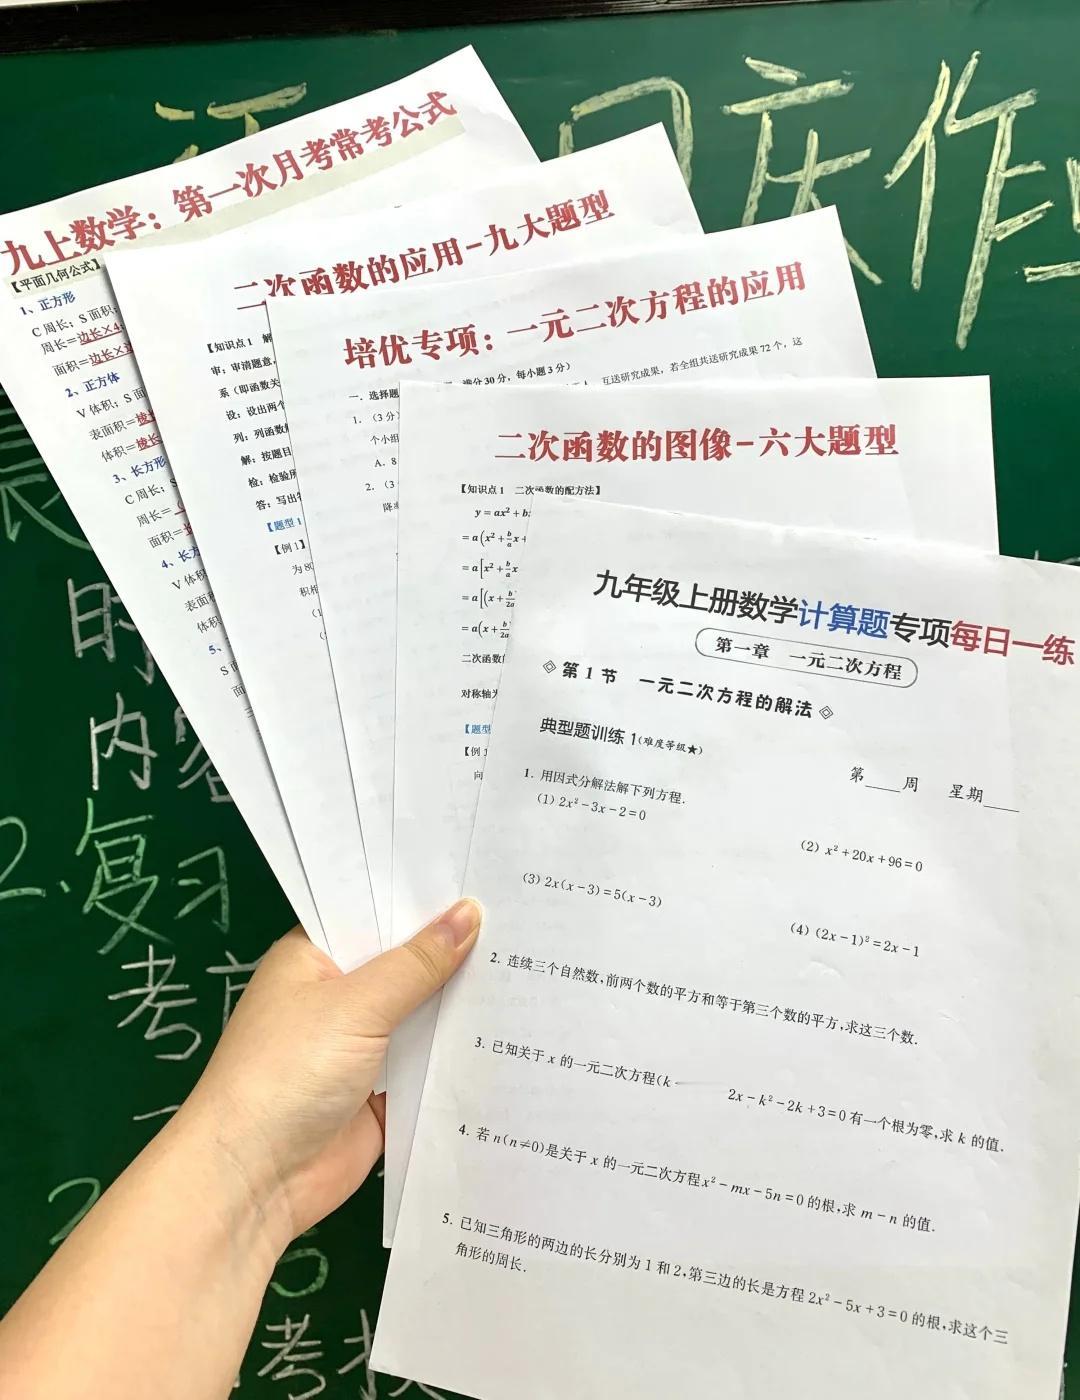 庆作
的
内容
2.复习
考
九上数学：第一次月考常考公式
【平面几何公式】
1、正方形
C周长；S面积；
周长＝边长×4；
面积＝边长×边
2、正方体
V体积；S面
表面积＝棱长
体积＝棱长
3、长方形
C周长；S
周长＝（
面积＝长
4、长方
V体积
表面积
体积
5、
S面
面
二次函数的应用-九大题型
【知识点1 解
审：审清题意，
系（即函数关
设：设出两个
列：列函数解
解：按题目
检：检验所
答：写出答
【题型1
【例1】
为80
积根
（1
（
培优专项：一元二次方程的应用
一．选择题 满分30分，每小题3分）
1．（3分） 互送研究成果，若全组共送研究成果72个，这
个小组
A．8
2．（3
降
二次函数的图像-六大题型
【知识点1 二次函数的配方法】
y = ax² + b
= a(x² + b/a x +
= a[x² + b/a x
= a[(x + b/2a
= a(x + b/2a
二次函数
对称轴为
【题型
【例1
向
九年级上册数学计算题专项每日一练
第一章 一元二次方程
第1节 一元二次方程的解法
典型题训练1(难度等级★)
第____周 星期____
1. 用因式分解法解下列方程.
(1) 2x²-3x-2=0
(2) x²+20x+96=0
(3) 2x(x-3)=5(x-3)
(4) (2x-1)²=2x-1
2. 连续三个自然数,前两个数的平方和等于第三个数的平方,求这三个数.
3. 已知关于x的一元二次方程(k 2x-k²-2k+3=0有一个根为零,求k的值.
4. 若n(n≠0)是关于x的一元二次方程x²-mx-5n=0的根,求m-n的值.
5. 已知三角形的两边的长分别为1和2,第三边的长是方程2x²-5x+3=0的根,求这个三
角形的周长.